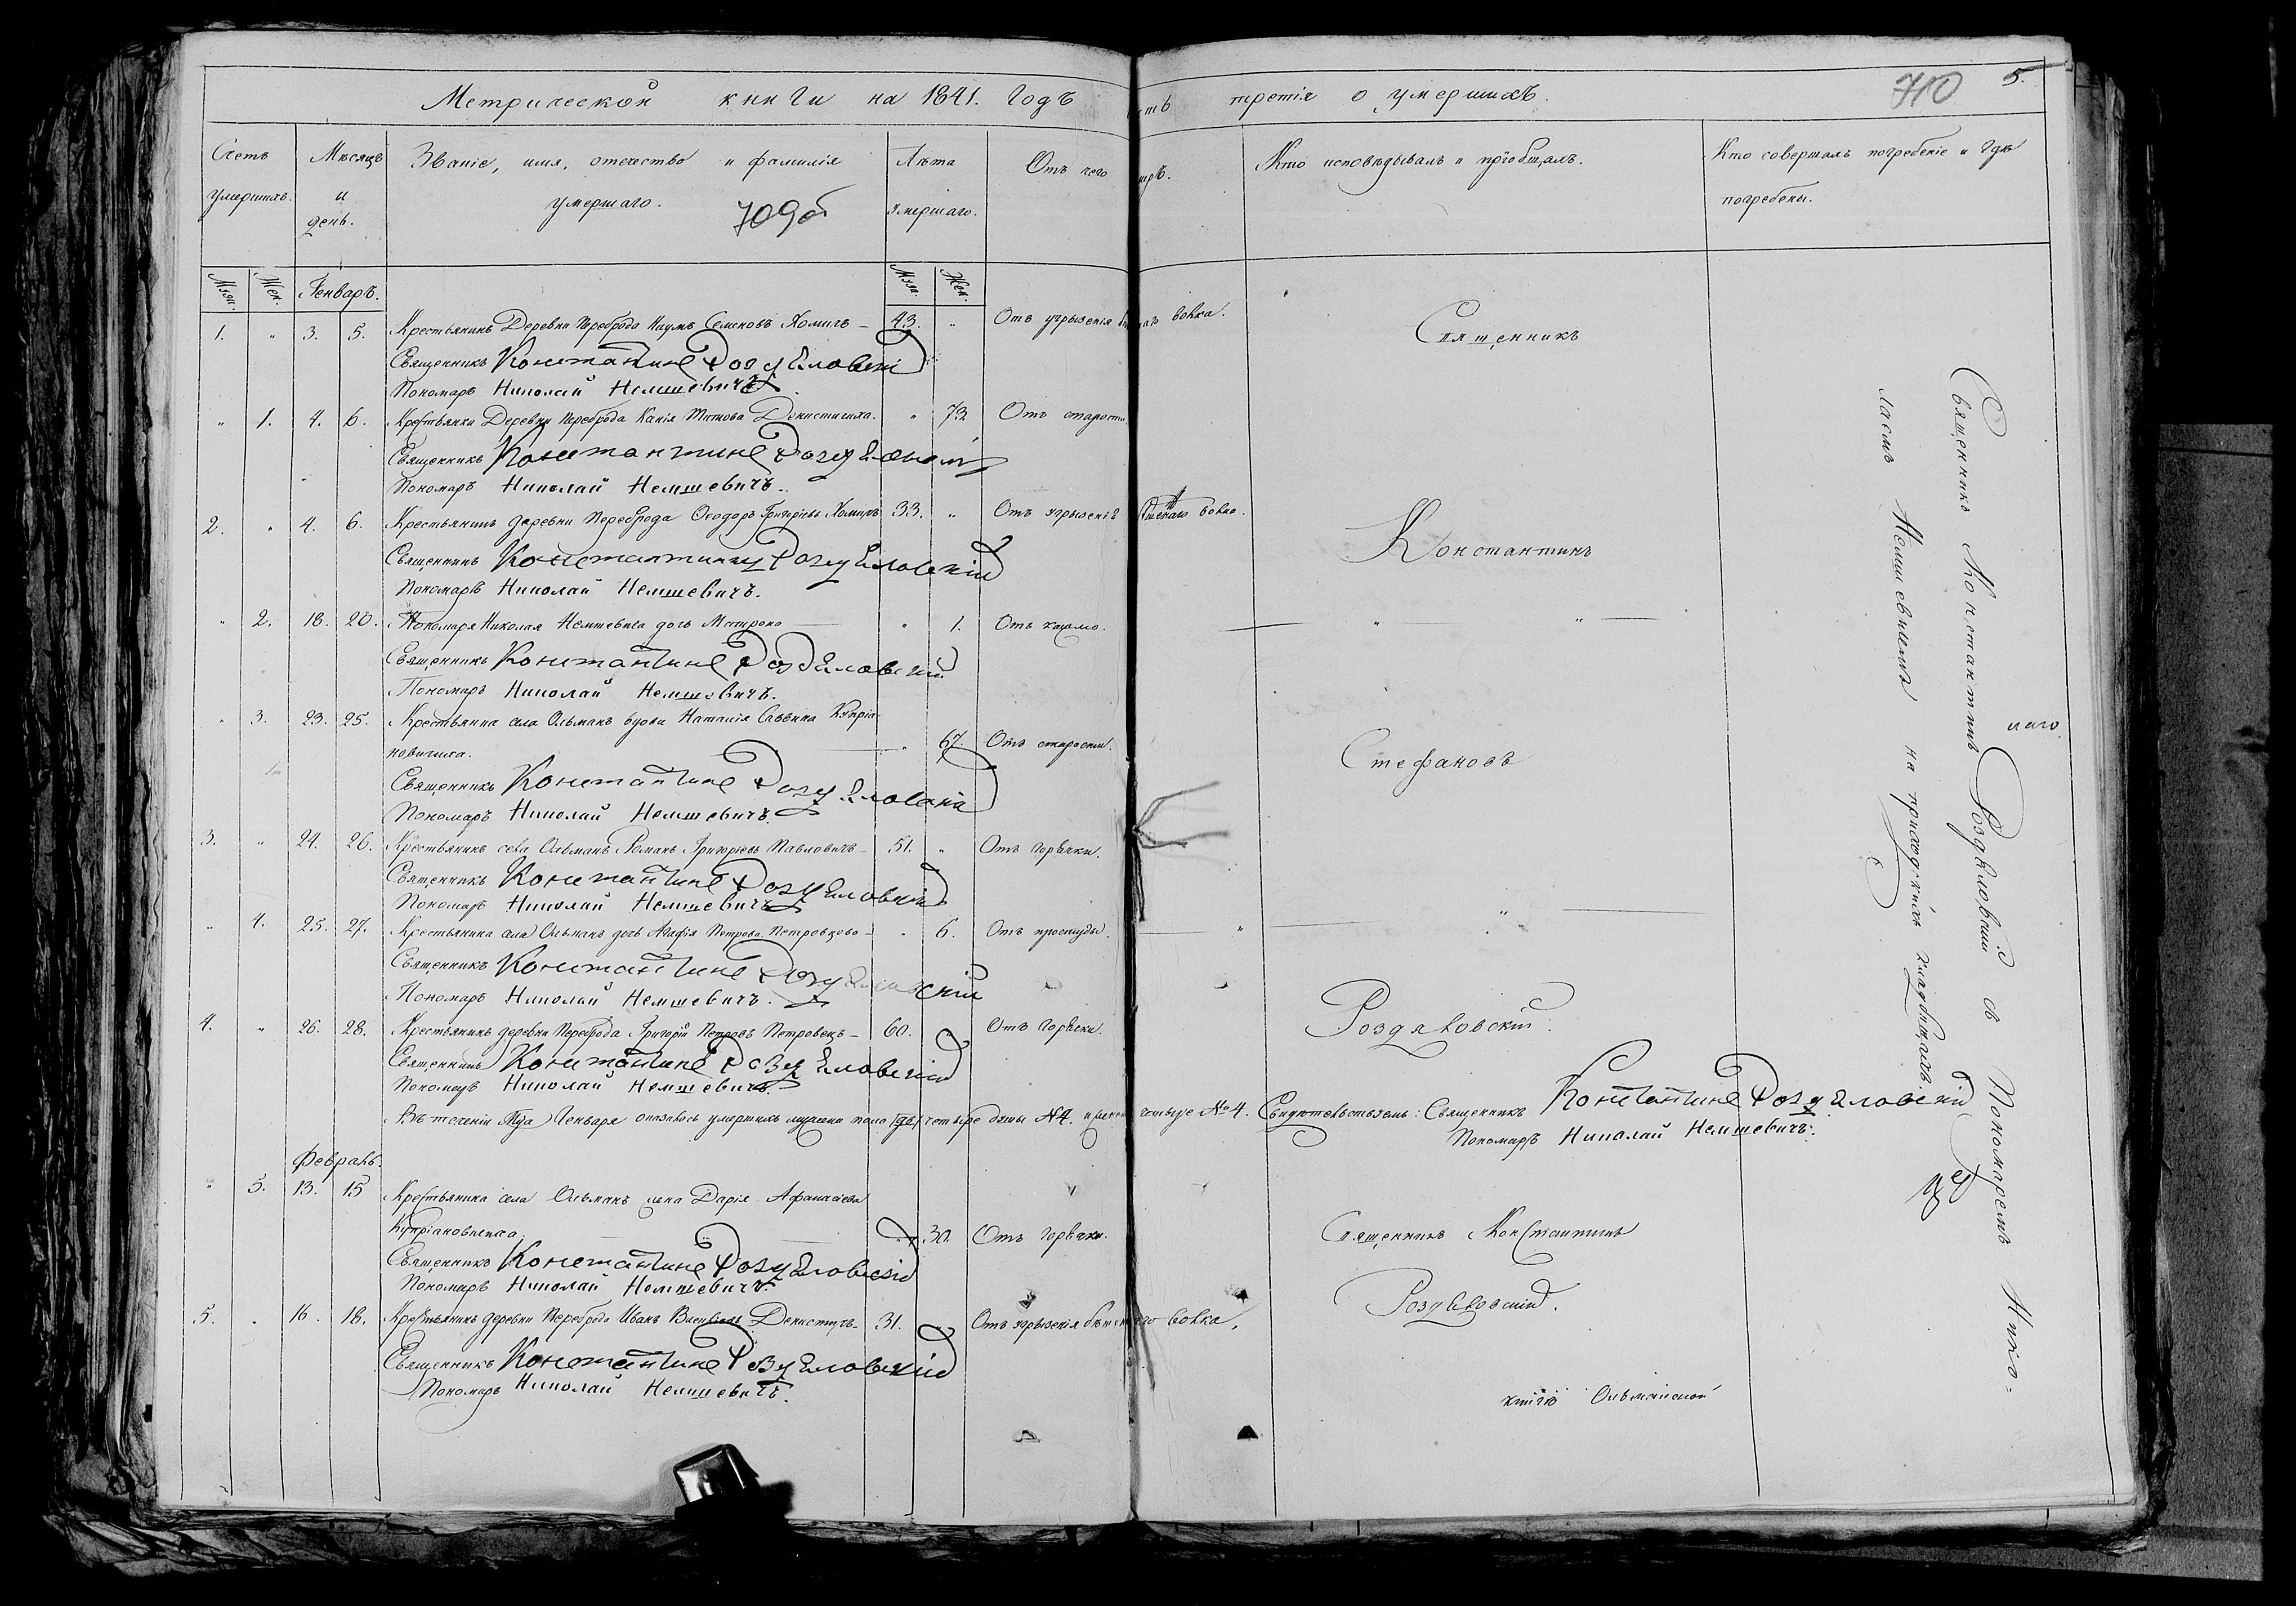 Метрической книги на 1841. Годъ
третія о умершихъ.
710 5.
Счетъ умершихъ.
Мѣсяцъ и день.
Званіе, имя, отечество и фамилія умершаго.
709об
Лѣта умершаго.
Отъ чего
Кто исповѣдывалъ и пріобщалъ.
Кто совершалъ погребеніе и гдѣ погребены.
Муж. Жен. Генварь. Муж. Жен.
1. " 3. 5. Крестьянинъ Деревни Переброда Наумъ Семеновъ Хомичъ – 43. " Отъ угрызенія вовка.
Священникъ Константинъ Роздяловскій
Пономаръ Николай Немшевичъ.
" 1. 4. 6. Крестьянка Деревни Переброда Титова Денисчиха. " 73 Отъ старости.
Священникъ Константинъ Роздяловскій
Пономаръ Николай Немшевичъ.
2. " 4. 6. Крестьянинъ деревни Переброда Ѳеодоръ Григорьевъ Хомичъ 33. " Отъ угрызенія вовка.
Священникъ Константинъ Роздяловскій
Пономаръ Николай Немшевичъ.
" 2. 18. 20. Пономаря Николая Немшевича дочь Матрона " 1. Отъ кашлю.
Священникъ Константинъ Роздяловскій
Пономаръ Николай Немшевичъ.
" 3. 23. 25. Крестьянка села Ольманъ вдова Наталія Саввина Купріа-
новичиха. " 67. Отъ старости.
Священникъ Константинъ Роздяловскій
Пономаръ Николай Немшевичъ.
3. " 24. 26. Крестьянинъ села Ольманъ Романъ Григоріевъ Павловичъ – 51. " Отъ горячки.
Священникъ Константинъ Роздяловскій
Пономаръ Николай Немшевичъ.
" 4. 25. 27. Крестьянина села Ольманъ дочь Агафія Петрова Петровцова – " 6. Отъ простуды.
Священникъ Константинъ Роздяловскій
Пономаръ Николай Немшевичъ.
4. " 26. 28. Крестьянинъ деревни Переброда Григорій Петровъ Петровецъ – 60. " Отъ горячки.
Священникъ Константинъ Роздяловскій
Пономаръ Николай Немшевичъ.
Въ теченіи Генваря оказалось умершихъ мужеска пола четыре № 4. № 4. Свидѣтельствуемъ: Священникъ Константинъ Роздяловскій
Пономаръ Николай Немшевичъ.
Февраль.
" 5. 13. 15 Крестьянина села Ольманъ жена Дарія Афанасіева
Купріановичиха " 30. Отъ горячки.
Священникъ Константинъ Роздяловскій
Пономаръ Николай Немшевичъ.
5. " 16. 18. Крестьянинъ деревни Переброда Иванъ Денисчичъ – 31. " Отъ угрызенія вовка.
Священникъ Константинъ Роздяловскій
Пономаръ Николай Немшевичъ.
Священникъ
Константинъ
Стефановъ
Роздяловскій.
Священникъ Константинъ
Роздяловскій.
Ольманской
Священникъ Константинъ Роздяловскій съ Пономаремъ Нико-
лаемъ Немшевичемъ на приходскихъ кладбищахъ.